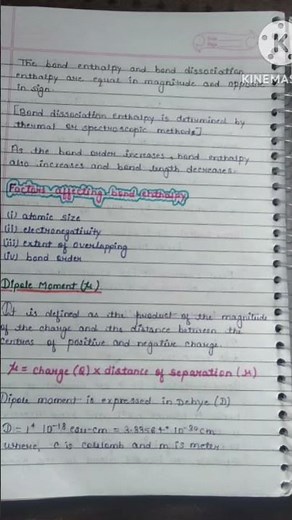 KINEMAS
The bond enthalpy and bond dissociation
enthalpy are equal in magnitude and opposite
in sign.
[Bond dissociation enthalpy is determined by
thermal or spectroscopic methods]
As the bond order increases, bond enthalpy
also increases and bond length decreases.
Factors affecting bond enthalpy
(i) atomic size
(ii) electronegativity
(iii) extent of overlapping
(iv) bond order
Dipole Moment (μ)
It is defined as the product of the magnitude
of the charge and the distance between the
centres of positive and negative charge.
μ = charge (Q) x distance of separation
Dipole moment is expressed in Debye (D)
where, c is coulomb and m is meter.